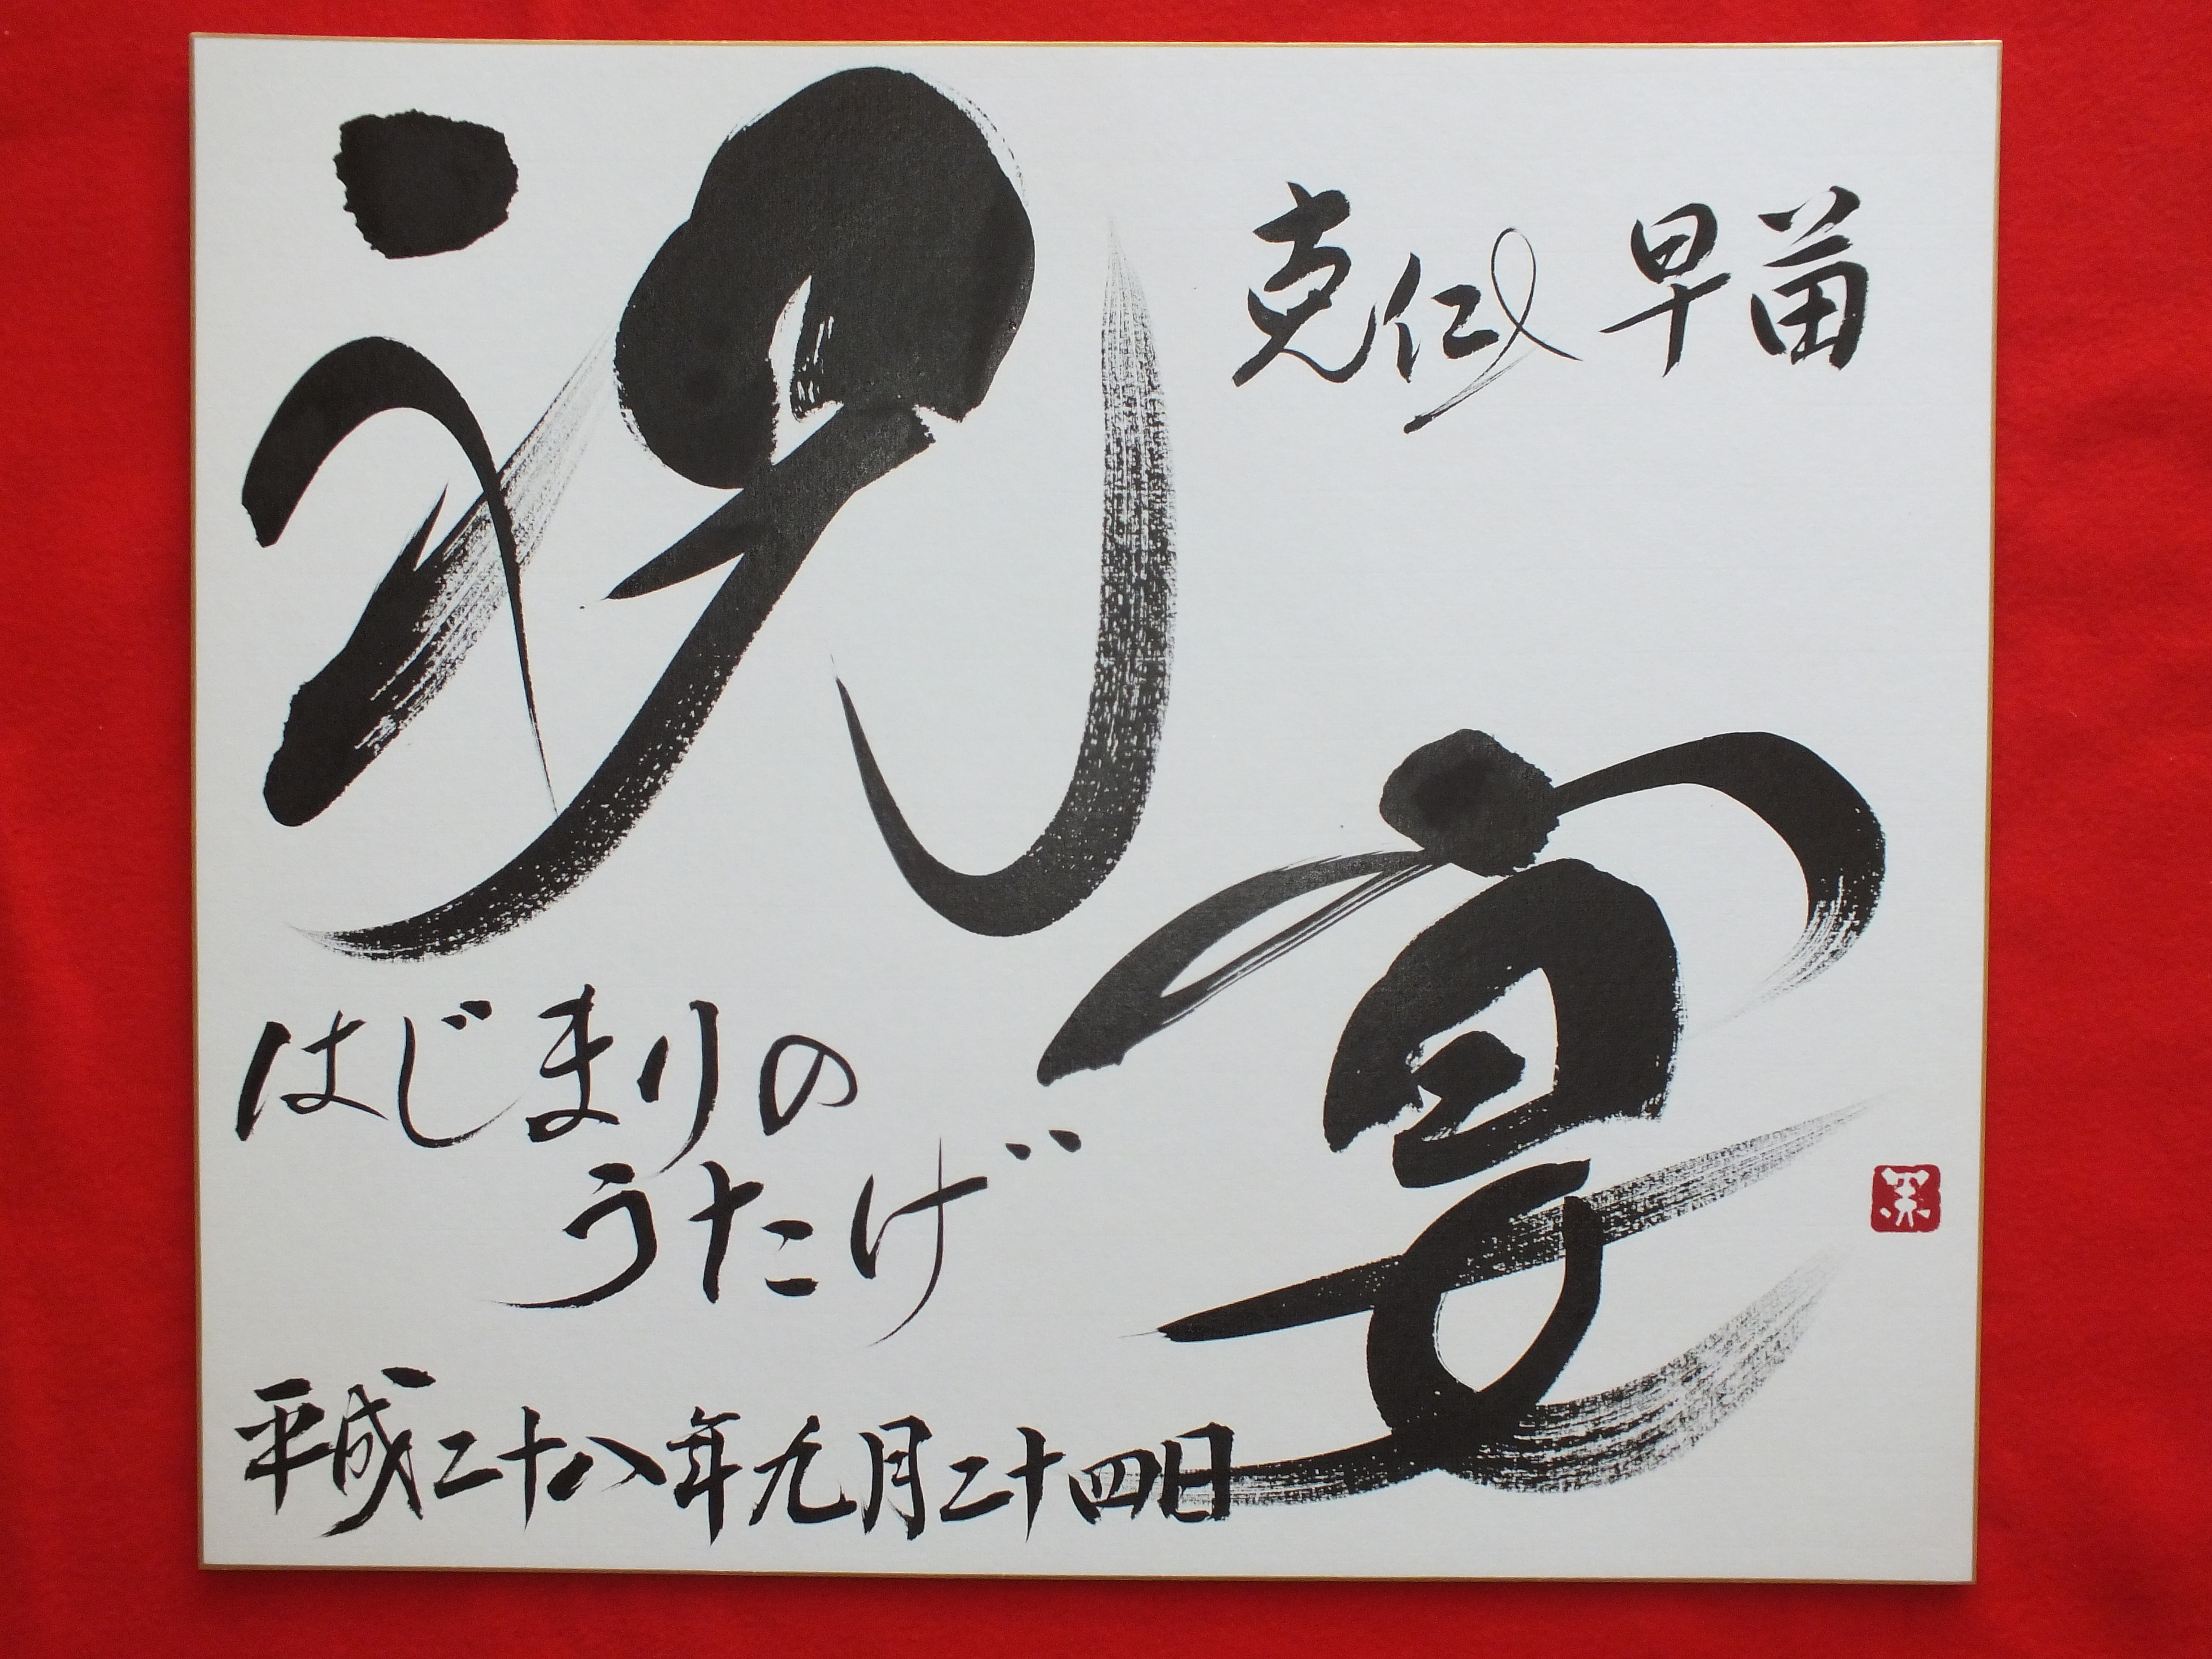 祝宴
克仁&早苗
はじまりの
うたげ
平成二十八年九月二十四日